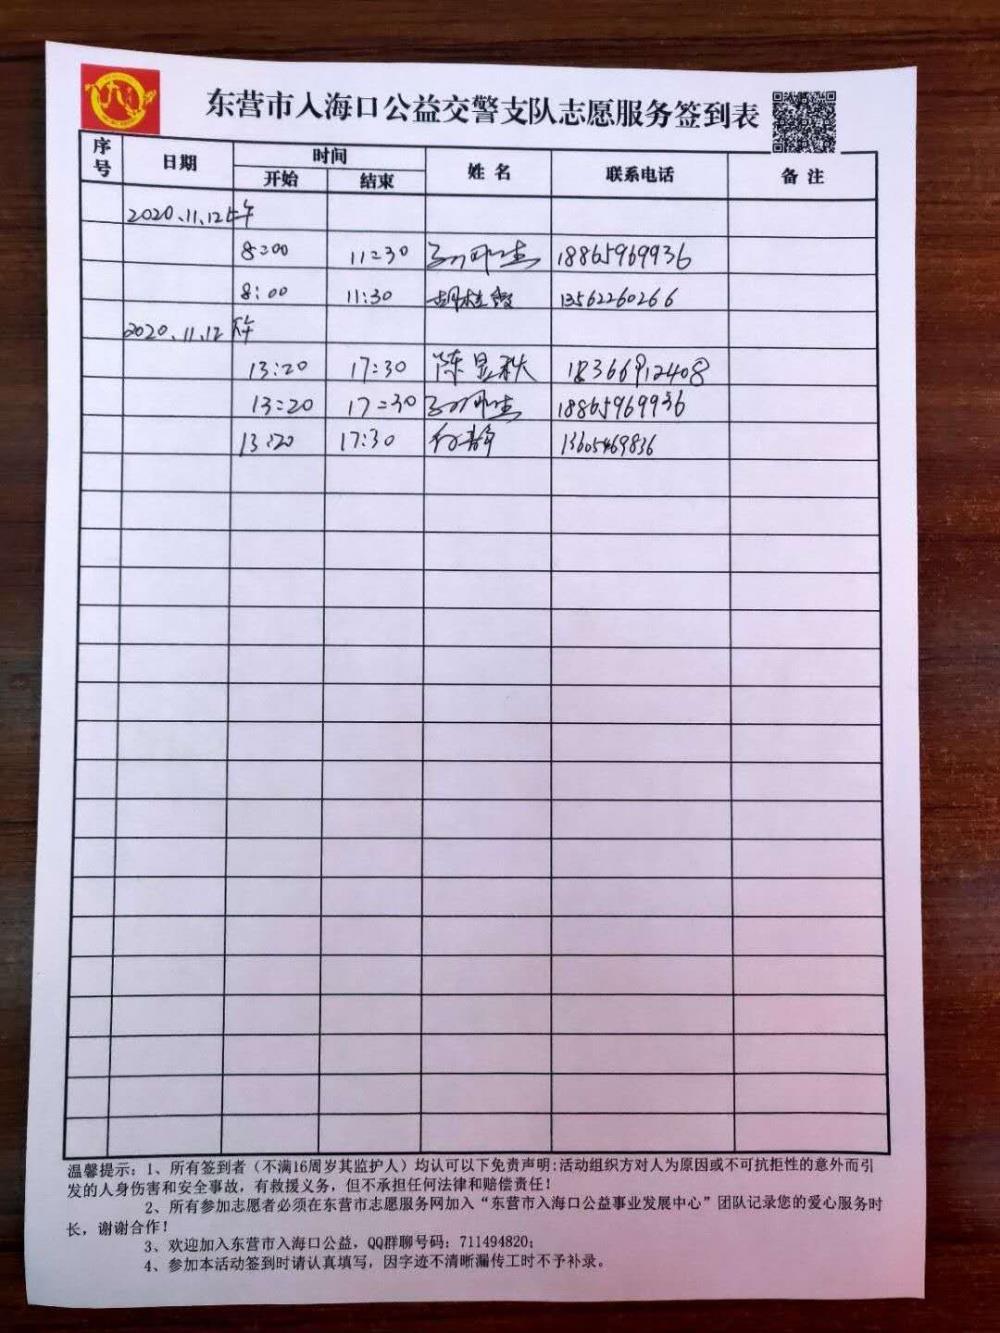 东营市入海口公益交警支队志愿服务签到表
序号 日期 时间 姓名 联系电话 备注
开始 结束
2020.11.12上午
8:00 11:30 18865969936
8:00 11:30 胡桂霞 13562260266
2020.11.12 下午
13:20 17:30 陈显秋 18366912408
13:20 17:30 18865969936
13:20 17:30 13605469836
温馨提示：1、所有签到者（不满16周岁其监护人）均认可以下免责声明:活动组织方对人为原因或不可抗拒性的意外而引
发的人身伤害和安全事故，有救援义务，但不承担任何法律和赔偿责任！
2、所有参加志愿者必须在东营市志愿服务网加入“东营市入海口公益事业发展中心”团队记录您的爱心服务时
长，谢谢合作！
3、欢迎加入东营市入海口公益，QQ群聊号码：711494820；
4、参加本活动签到时请认真填写，因字迹不清晰漏传工时不予补录。